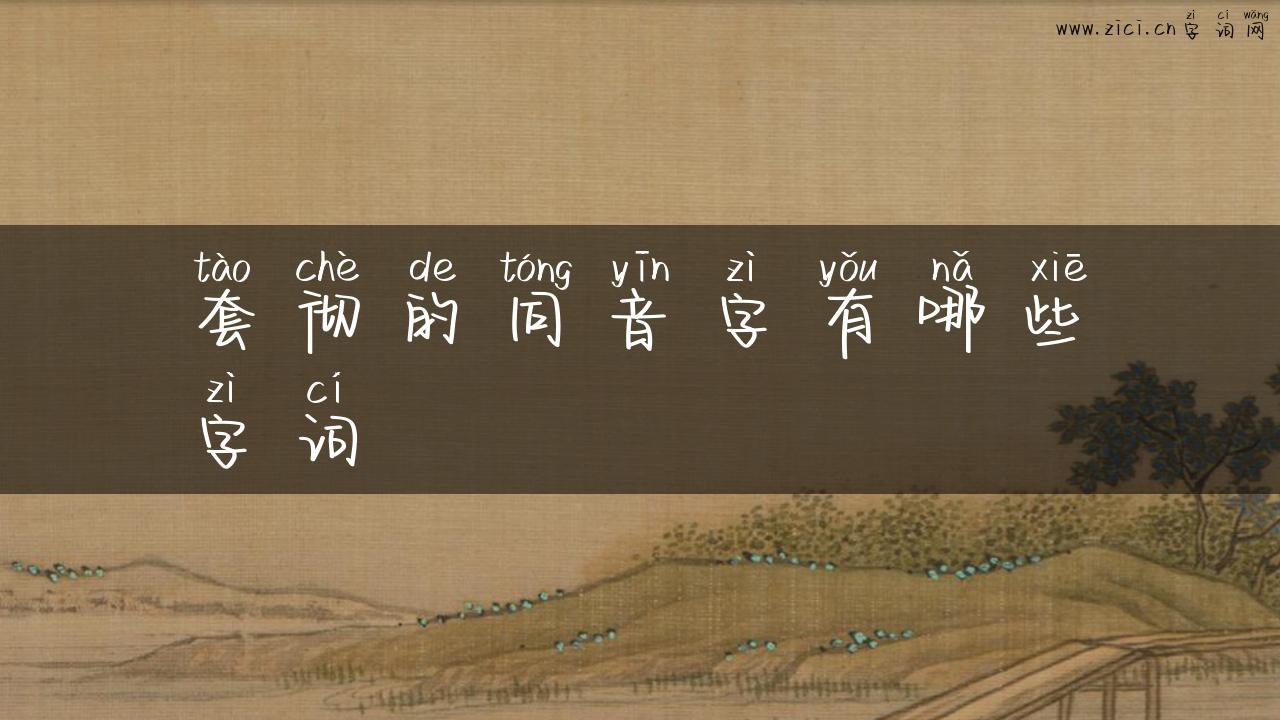 zì cí wǎng
www.zici.cn 字词网
tào chè de tóng yīn zì yǒu nǎ xiē
套彻的同音字有哪些
zì cí
字词